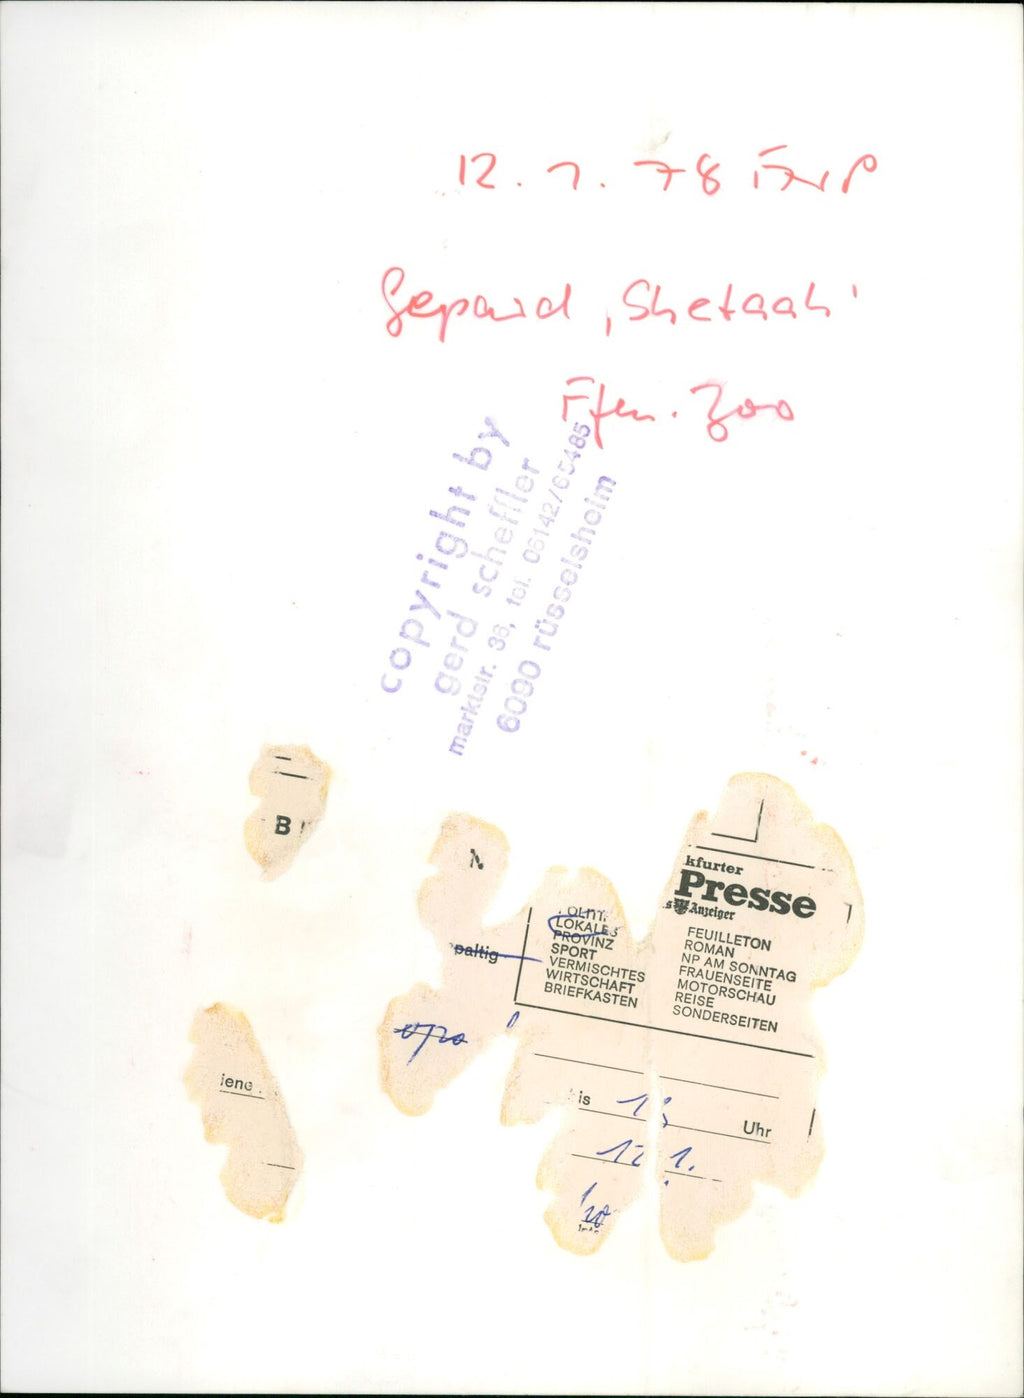 12.1.78 FNP
Gepard 'Shetaah'
Ffm. Zoo
copyright by
gerd scheffler
marktstr. 36, tel. 06142/65485
6090 rüsselsheim
B
kfurter
Presse
s Anzeiger
LOKALES
PROVINZ
SPORT
VERMISCHTES
WIRTSCHAFT
BRIEFKASTEN
FEUILLETON
ROMAN
NP AM SONNTAG
FRAUENSEITE
MOTORSCHAU
REISE
SONDERSEITEN
paltig
iene
is
Uhr
12.1.